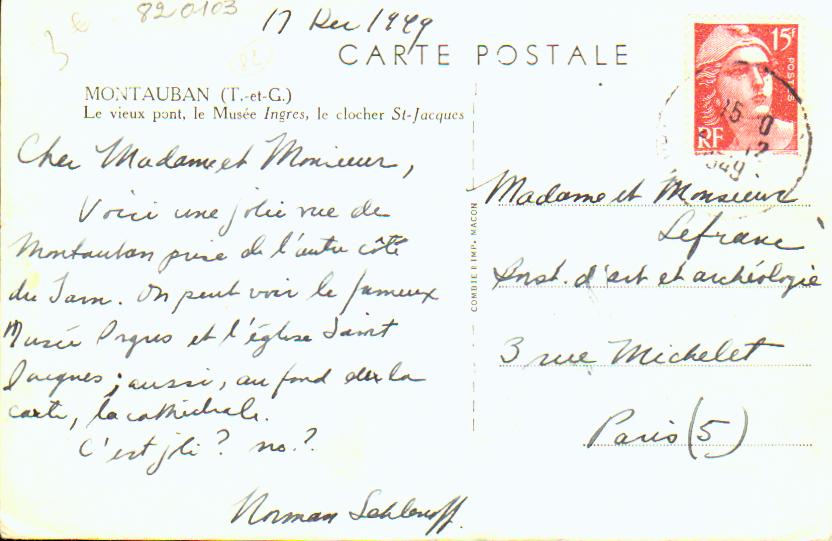 820103
17 Dec 1949
CARTE POSTALE
15f
POSTES
RF
15
12
1949
MONTAUBAN (T.-et-G.)
Le vieux pont, le Musée Ingres, le clocher St-Jacques
Cher Madame et Monsieur,
Voici une jolie vue de
Montauban prise de l'autre côté
du Tarn. On peut voir le fameux
Musée Ingres et l'église Saint
Jacques; aussi, au fond de la
carte, la cathédrale.
C'est joli? no.?
Norman Schlenoff
COMBIER IMP. MACON
Madame et Monsieur
Lefranc
Inst. d'art et archéologie
3 rue Michelet
Paris (5)